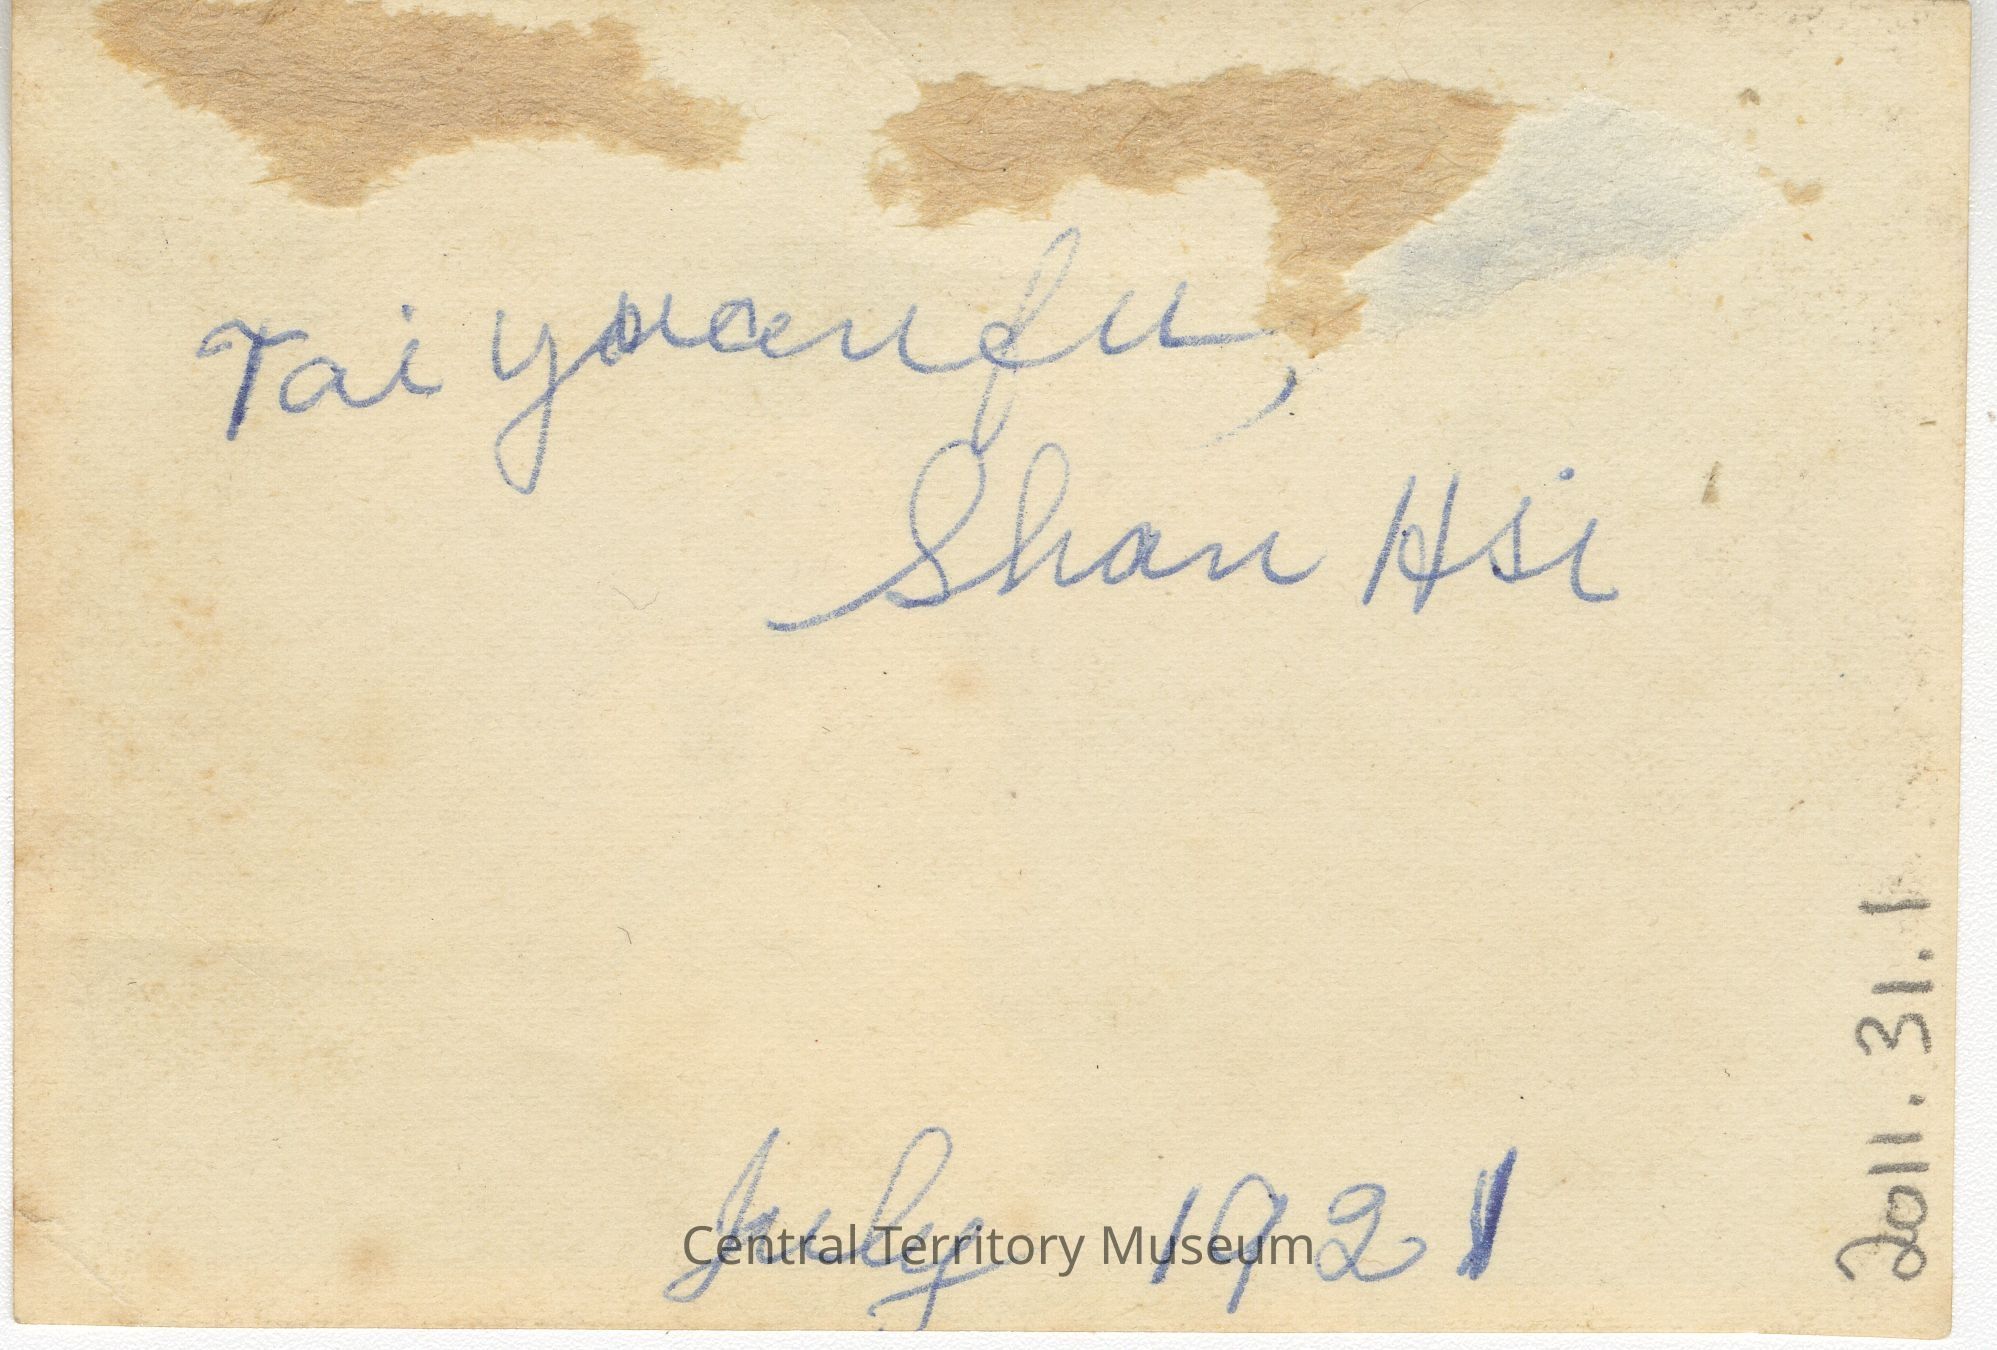 Tai yuanfu,
Shan Hsi
July 1921
Central Territory Museum
2011.31.1